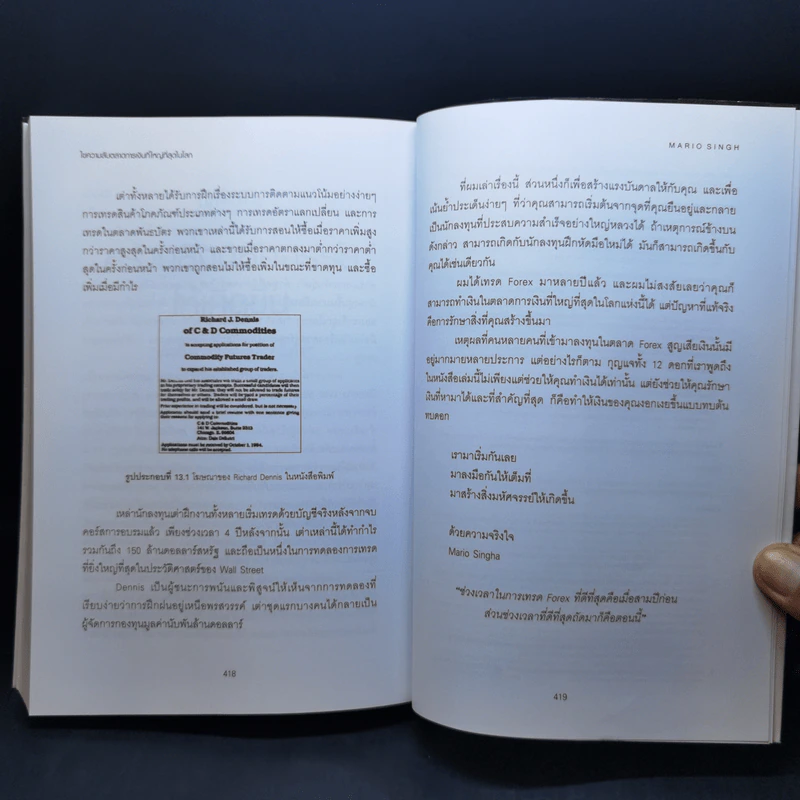 ไขความลับตลาดการเงินที่ใหญ่ที่สุดในโลก
เต่าทั้งหลายได้รับการฝึกเรื่องระบบการติดตามแนวโน้มอย่างง่ายๆ
การเทรดสินค้าโภคภัณฑ์ประเภทต่างๆ การเทรดอัตราแลกเปลี่ยน และการ
เทรดในตลาดพันธบัตร พวกเขาเหล่านี้ได้รับการสอนให้ซื้อเมื่อราคาเพิ่มสูง
กว่าราคาสูงสุดในครั้งก่อนหน้า และขายเมื่อราคาตกลงมาต่ำกว่าราคาต่ำ
สุดในครั้งก่อนหน้า พวกเขาถูกสอนไม่ให้ซื้อเพิ่มในขณะที่ขาดทุน และซื้อ
เพิ่มเมื่อมีกำไร
Richard J. Dennis
of C & D Commodities
is accepting applications for position of
Commodity Futures Trader
to expand his established group of traders.
Mr. Dennis and his associates will train a small group of applicants
in his proprietary trading concepts. Successful candidates will then
trade solely for Mr. Dennis: they will not be allowed to trade futures
for themselves or others. Traders will be paid a percentage of their
trading profits, and will be allowed a small draw.
Prior experience in trading will be considered, but is not necessary.
Applicants should send a brief resume with one sentence giving
their reasons for applying to:
C & D Commodities
141 W. Jackson, Suite 2313
Chicago, IL 60604
Attn: Dale Dellutri
Applications must be received by October 1, 1984.
No telephone calls will be accepted.
รูปประกอบที่ 13.1 โฆษณาของ Richard Dennis ในหนังสือพิมพ์
เหล่านักลงทุนเต่าฝึกงานทั้งหลายเริ่มเทรดด้วยบัญชีจริงหลังจากจบ
คอร์สการอบรมแล้ว เพียงช่วงเวลา 4 ปีหลังจากนั้น เต่าเหล่านี้ได้ทำกำไร
รวมกันถึง 150 ล้านดอลลาร์สหรัฐ และถือเป็นหนึ่งในการทดลองการเทรด
ที่ยิ่งใหญ่ที่สุดในประวัติศาสตร์ของ Wall Street
Dennis เป็นผู้ชนะการพนันและพิสูจน์ให้เห็นจากการทดลองที่
เรียบง่ายว่าการฝึกฝนอยู่เหนือพรสวรรค์ เต่าชุดแรกบางคนได้กลายเป็น
ผู้จัดการกองทุนมูลค่านับพันล้านดอลลาร์
418
MARIO SINGH
ที่ผมเล่าเรื่องนี้ ส่วนหนึ่งก็เพื่อสร้างแรงบันดาลให้กับคุณ และเพื่อ
เน้นย้ำประเด็นง่ายๆ ที่ว่าคุณสามารถเริ่มต้นจากจุดที่คุณยืนอยู่และกลาย
เป็นนักลงทุนที่ประสบความสำเร็จอย่างใหญ่หลวงได้ ถ้าเหตุการณ์ข้างบน
ดังกล่าว สามารถเกิดกับนักลงทุนฝึกหัดมือใหม่ได้ มันก็สามารถเกิดขึ้นกับ
คุณได้เช่นเดียวกัน
ผมได้เทรด Forex มาหลายปีแล้ว และผมไม่สงสัยเลยว่าคุณก็
สามารถทำเงินในตลาดการเงินที่ใหญ่ที่สุดในโลกแห่งนี้ได้ แต่ปัญหาที่แท้จริง
คือการรักษาสิ่งที่คุณสร้างขึ้นมา
เหตุผลที่คนหลายคนที่เข้ามาลงทุนในตลาด Forex สูญเสียเงินนั้นมี
อยู่มากมายหลายประการ แต่อย่างไรก็ตาม กุญแจทั้ง 12 ดอกที่เราพูดถึง
ในหนังสือเล่มนี้ไม่เพียงแต่ช่วยให้คุณทำเงินได้เท่านั้น แต่ยังช่วยให้คุณรักษา
เงินที่หามาได้และที่สำคัญที่สุด ก็คือทำให้เงินของคุณงอกเงยขึ้นแบบทบต้น
ทบดอก
เรามาเริ่มกันเลย
มาลงมือกันให้เต็มที่
มาสร้างสิ่งมหัศจรรย์ให้เกิดขึ้น
ด้วยความจริงใจ
Mario Singha
"ช่วงเวลาในการเทรด Forex ที่ดีที่สุดคือเมื่อสามปีก่อน
ส่วนช่วงเวลาที่ดีที่สุดถัดมาก็คือตอนนี้"
419